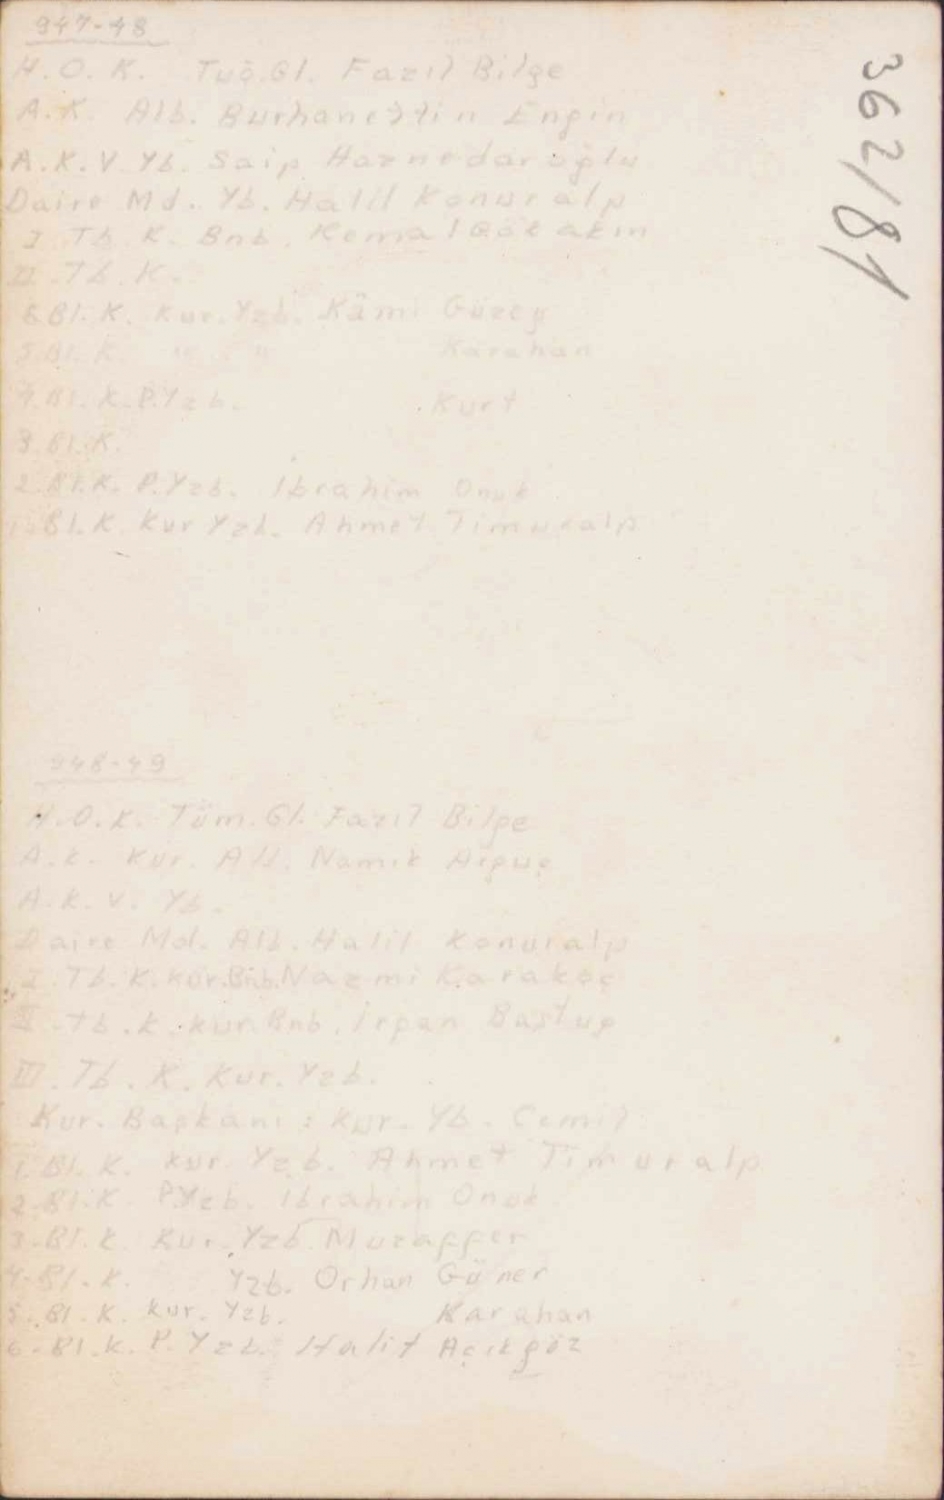 947-48
H.O.K. Tuğ.Gl. Fazıl Bilge
A.K. Alb. Burhanettin Engin
A.K.V. Yb. Saip Haznedaroğlu
Daire Md. Yb. Halil Konuralp
I Tb. K. Bnb. Kemal Gökakın
II.Tb.K.
6.Bl.K. Kur.Yzb. Kâmi Güzey
5.Bl.K. " " Karahan
4.Bl.K.P.Yzb. Kurt
3.Bl.K.
2.Bl.K. P.Yzb. İbrahim Onuk
1.Bl.K. Kur Yzb. Ahmet Timuralp
948-49
H.O.K. Tüm.Gl. Fazıl Bilge
A.K. Kur. Alb. Namık Argüç
A.K.V. Yb.
Daire Md. Alb. Halil Konuralp
I.Tb.K.Kur.Bnb.Nazmi Karakoç
II.Tb.K.Kur.Bnb.İrfan Baştuğ
III.Tb.K.Kur.Yzb.
Kur. Başkanı: Kur.Yb. Cemil
1.Bl.K. Kur Yzb. Ahmet Timuralp
2.Bl.K P.Yzb. İbrahim Onuk.
3.Bl.K. Kur.Yzb. Muzaffer
4.Bl.K. Yzb. Orhan Güner
5.Bl.K. Kur. Yzb. Karahan
6.Bl.K. P.Yzb. Halit Açıkgöz
362/81